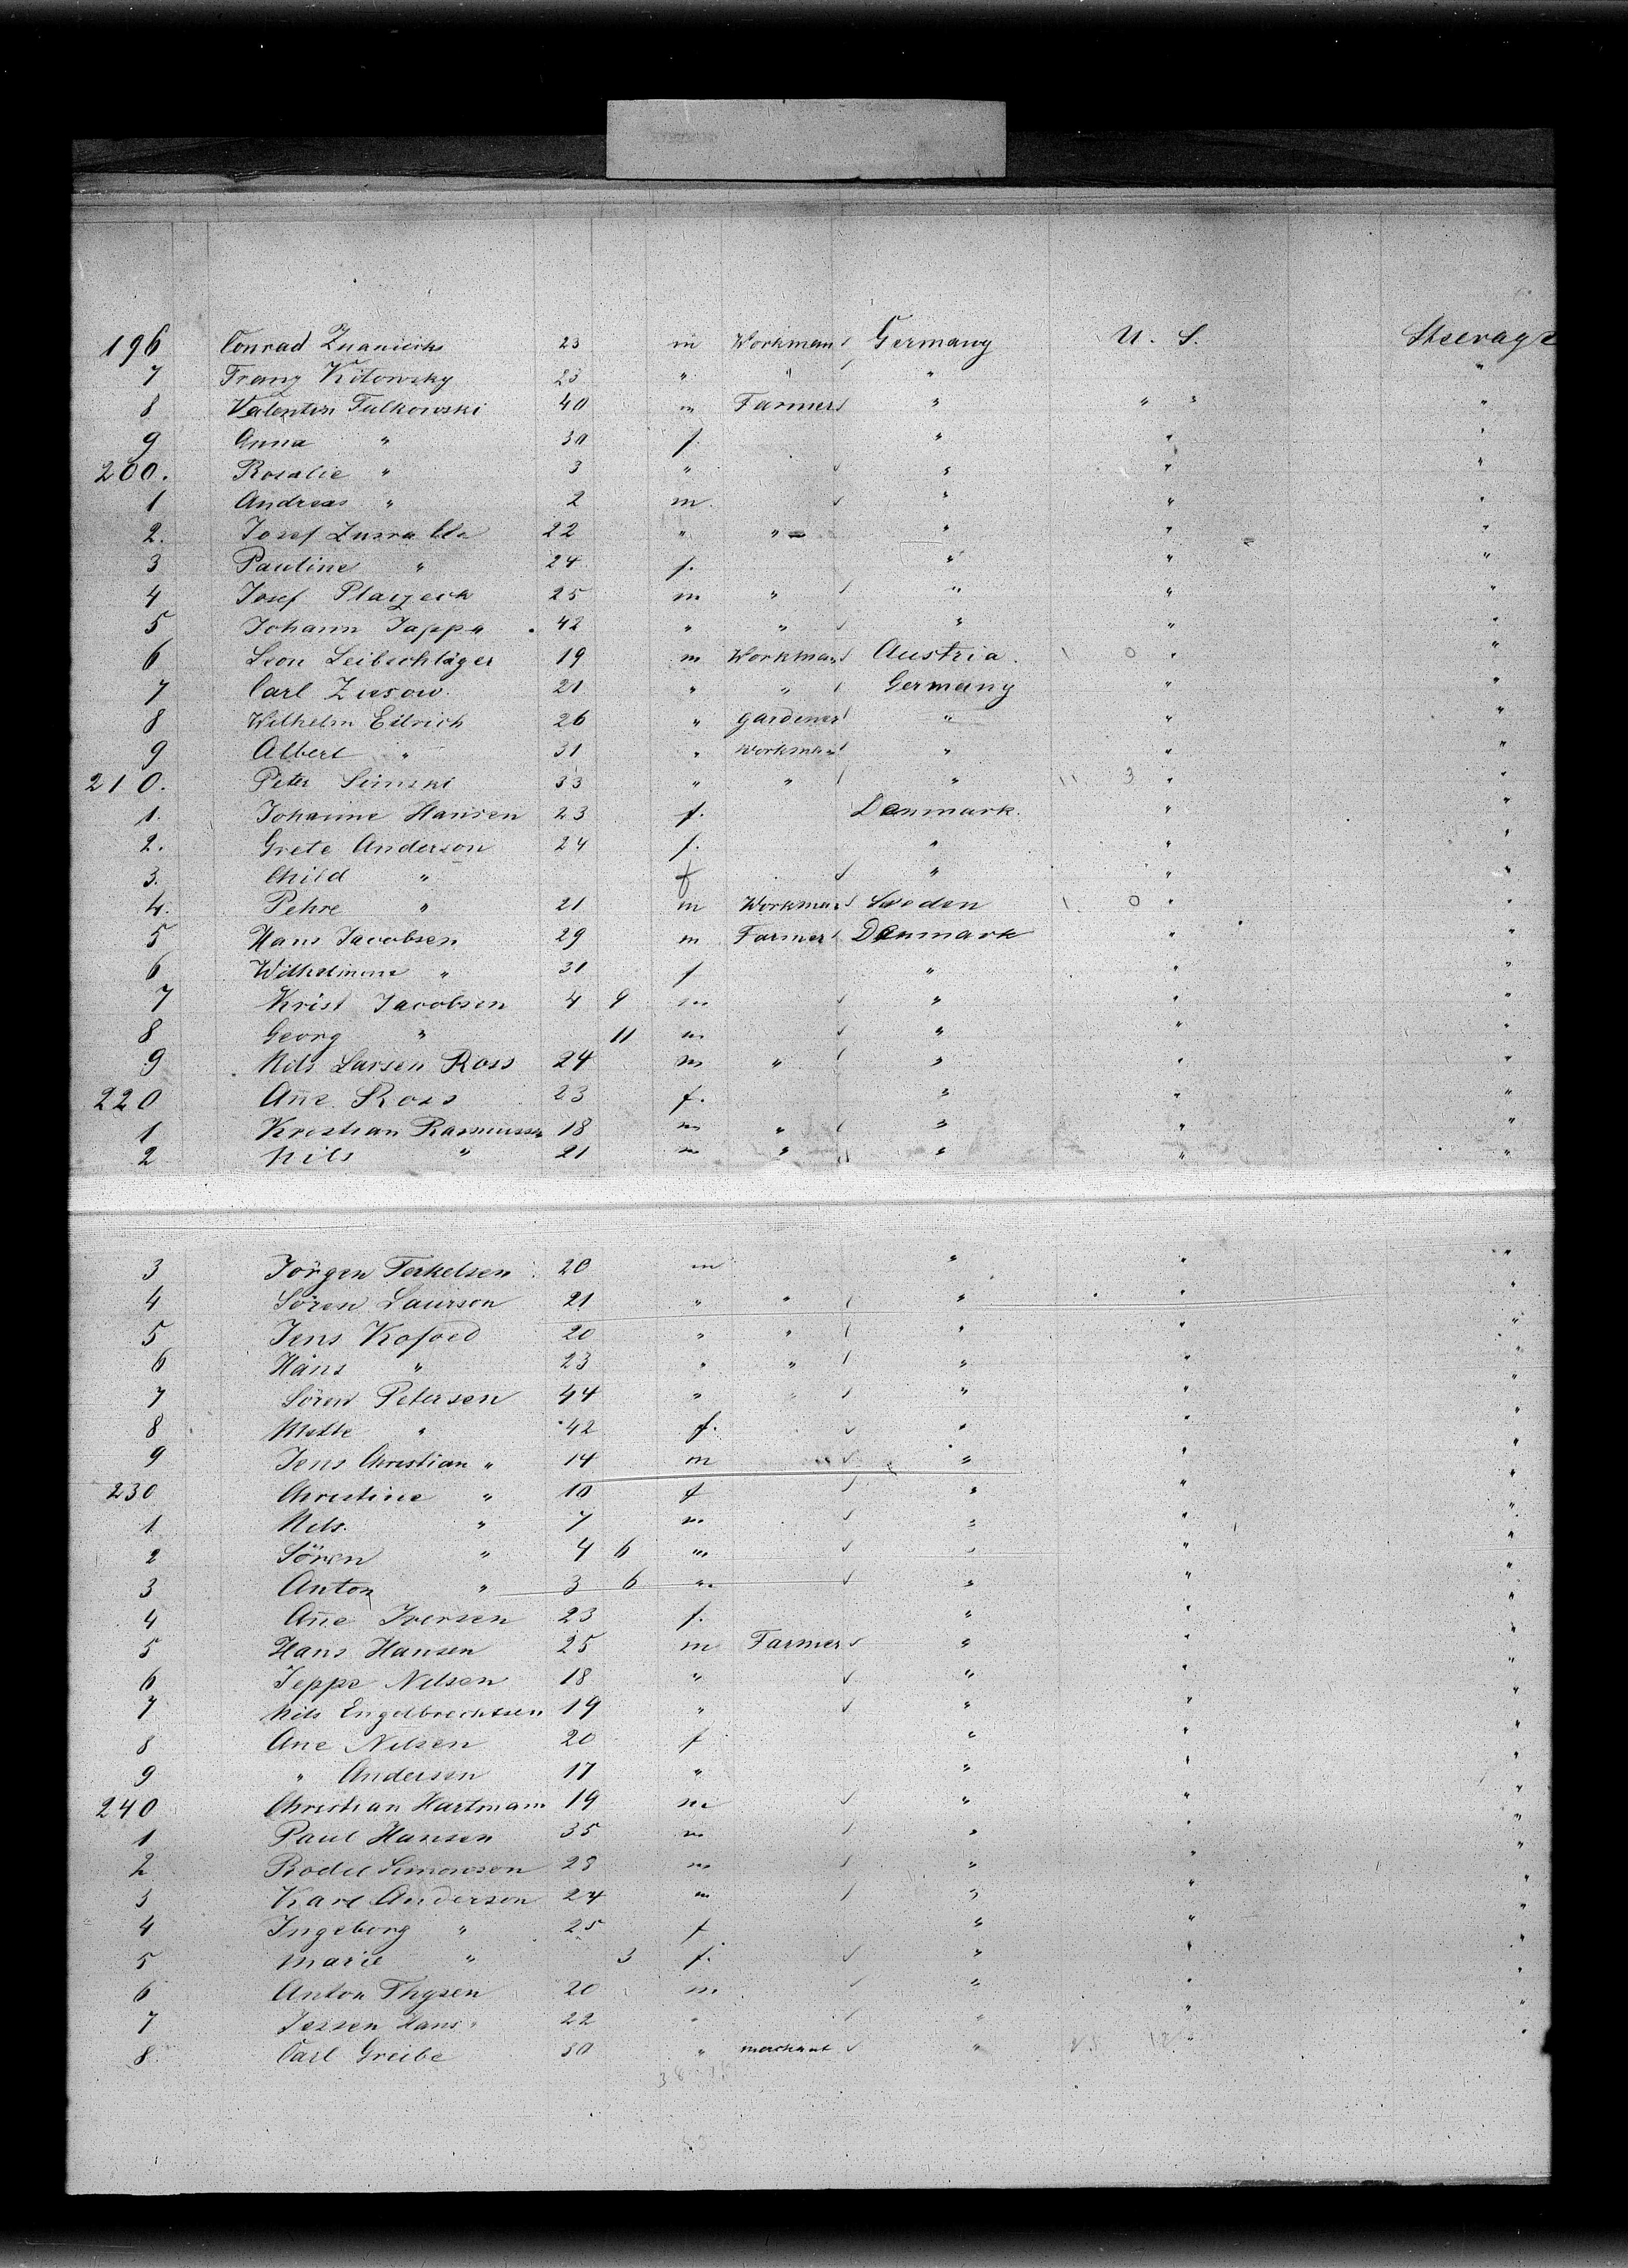 196 Conrad 23 m Workman Germany U. S. Steerage
7 Franz Kitowsky 23 " " " "
8 Valentin Fulkowski 40 m Farmer " " " "
9 Anna " 30 f. " " "
200. Rosalie " 3 " " " "
1 Andreas " 2 m. " " "
2. Josef 22 " " " " "
3 Pauline " 24 f. " " "
4 Josef Placzeck 25 m " " " "
5 Johann Jappa 42 " " " " "
6 Leon Leibschläger 19 m Workman Austria. 1 0 " "
7 Carl Ziesow. 21 " " Germany " "
8 Wilhelm Eilrich 26 " gardener " " "
9 Albert " 31 " workman " " "
210. Peter Simski 33 " " " 11 3 " "
1. Johanne Hansen 23 f. Danmark. " "
2. Grete Anderson 24 f. " " "
3. Child " f " " "
4. Pehre " 21 m Workman Sweden 1 0 " "
5 Hans Jacobsen 29 m Farmer Danmark " "
6 Wilhelmine " 31 f " " "
7 Krist Jacobsen 4 9 m " " "
8 Georg " 11 m " " "
9 Nils Larsen Ross 24 m " " " "
220 Ane Ross 23 f. " " "
1 Kristian Rasmussen 18 m " " " "
2 Nils " 21 m " " " "
3 Jörgen Terkelsen 20 m " " "
4 Sören Laurson 21 " " " " "
5 Jens Kofoed 20 " " " " "
6 Hans " 23 " " " " "
7 Sören Petersen 44 " " " " "
8 Mette " 42 f. " " "
9 Jens Christian " 14 m " " "
230 Christine " 10 f " " "
1 Nils. " 7 m " " "
2 Sören " 4 6 m " " "
3 Anton " 3 6 m " " "
4 Ane Iversen 23 f. " " "
5 Hans Hansen 25 m Farmer " " "
6 Jeppe Nilsen 18 " " " "
7 Nils Engelbrechtsen 19 " " " "
8 Ane Nilsen 20 f " " "
9 " Andersen 17 " " " "
240 Christian Hartmann 19 m " " "
1 Paul Hansen 35 m " " "
2 Bodil Simonsen 23 m " " "
3 Karl Anderson 24 m " " "
4 Ingeborg " 25 f " " "
5 Marie " 3 f. " " "
6 Anton Thysen 20 m " " "
7 Jessen Hans 22 " " " "
8. Carl Greibe 30 " merchant " " "